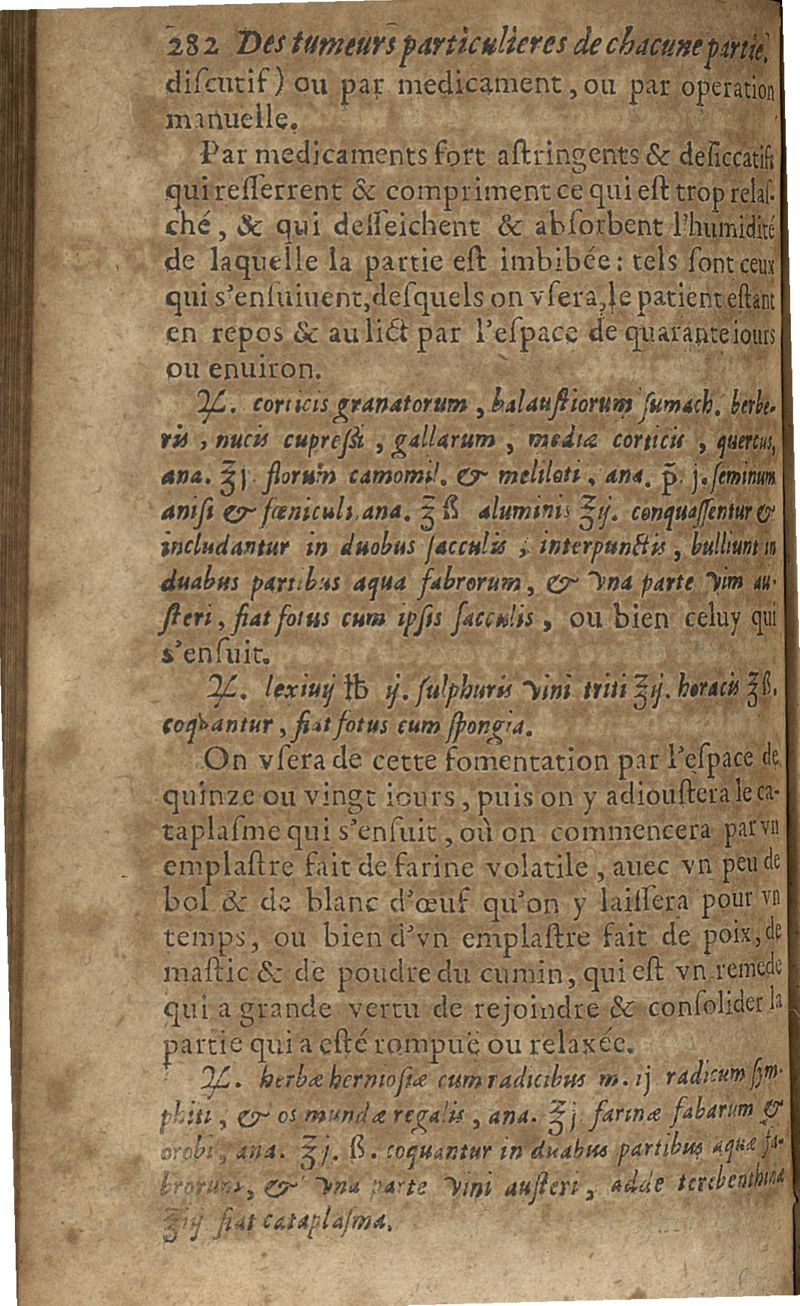 282 Des tumeurs particulieres de chacune partie.
discutif) ou par medicament, ou par operation
manuelle.
Par medicaments fort astringents & desiccatifs
qui resserrent & compriment ce qui est trop relas-
ché, & qui desseichent & absorbent l'humidité
de laquelle la partie est imbibée: tels sont ceux
qui s'ensuiuent, desquels on vsera, le patient estant
en repos & au lict par l'espace de quarante iours
ou enuiron.
♃. corticis granatorum, balaustiorum sumach. berbe-
ris, nucis cupressi, gallarum, mediæ corticis, quercus,
ana. ℥j. florum camomil. & meliloti, ana. p̄. j. seminum
anisi & fœniculi ana. ℥ ß aluminis ℥ij. conquassentur &
includantur in duobus sacculis, interpunctis, bulliunt in
duabus partibus aqua fabrorum, & vna parte vim au-
steri, fiat fotus cum ipsis sacculis, ou bien celuy qui
s'ensuit.
♃. lexiuij ℔ ij. sulphuris vini triti ℥ij. boracis ℥ß.
coquantur, fiat fotus cum spongia.
On vsera de cette fomentation par l'espace de
quinze ou vingt iours, puis on y adioustera le ca-
taplasme qui s'ensuit, où on commencera par vn
emplastre fait de farine volatile, auec vn peu de
bol & de blanc d'œuf qu'on y laissera pour vn
temps, ou bien d'vn emplastre fait de poix, de
mastic & de poudre du cumin, qui est vn remede
qui a grande vertu de rejoindre & consolider la
partie qui a esté rompuë ou relaxée.
♃. herbæ herniosiæ cum radicibus m. ij radicum sym-
phiti, & os mundæ regalis, ana. ℥j farinæ fabarum &
orobi, ana. ℥j. ß. coquantur in duabus partibus aquæ fa-
brorum, & vna parte vini austeri, adde terebenthina
℥iij fiat cataplasma.